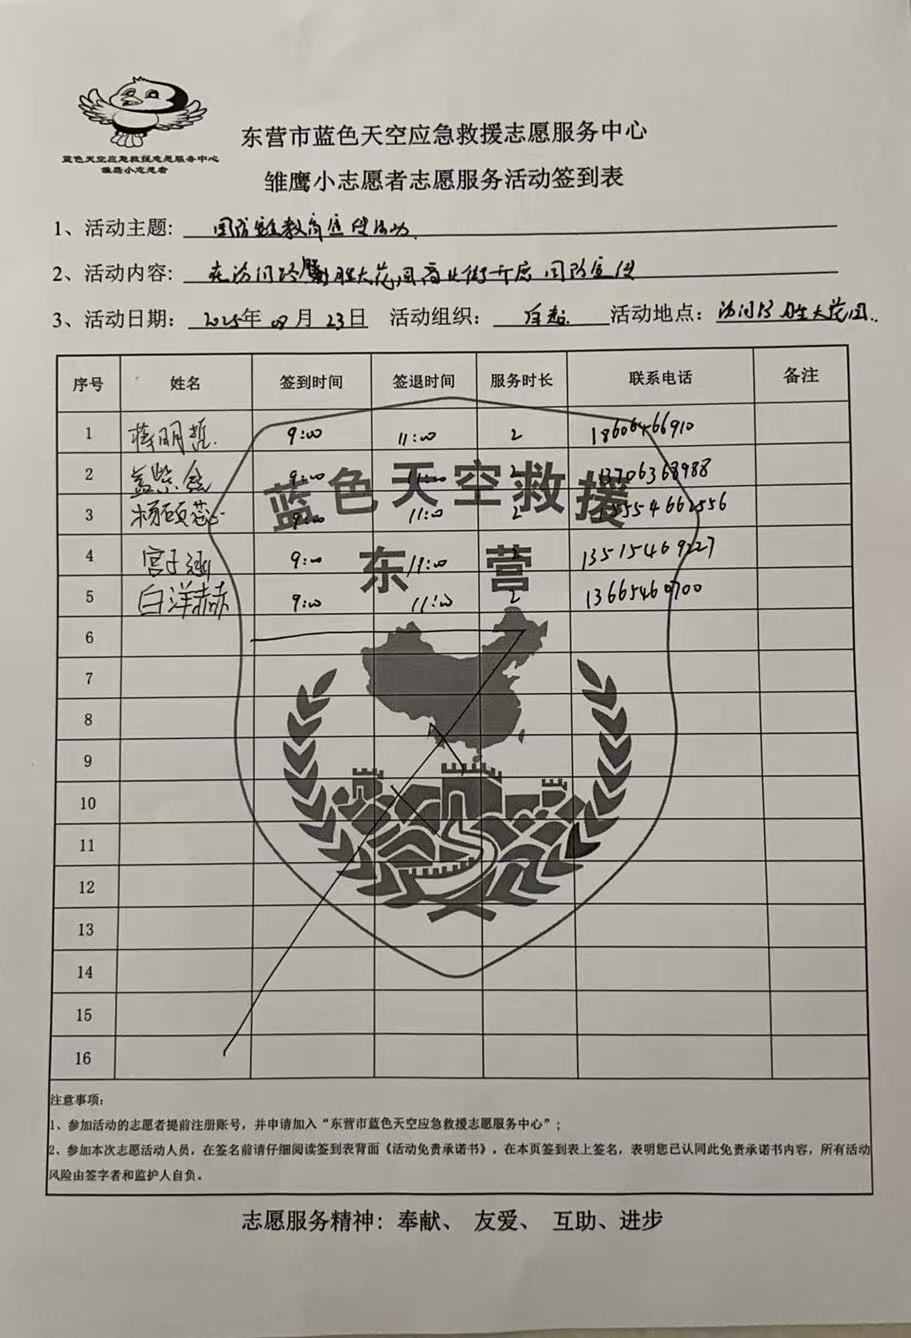 蓝色天空应急救援志愿服务中心
雏鹰小志愿者
东营市蓝色天空应急救援志愿服务中心
雏鹰小志愿者志愿服务活动签到表
1、活动主题: 国防教育宣传活动
2、活动内容: 在访问路 胜大花园商业街开展国防宣传
3、活动日期: 2025年08月23日 活动组织: 活动地点: 胜大花园
序号 姓名 签到时间 签退时间 服务时长 联系电话 备注
1 蒋明哲 9:00 11:00 2 18606466910
2 9:00 11:00 2 13706368988
3 杨硕蕊 9:00 11:00 2
4 宫子涵 9:00 11:00 2 13515469227
5 白洋赫 9:00 11:00 2 13665460700
蓝色天空救援
东营
6
7
8
9
10
11
12
13
14
15
16
注意事项:
1、参加活动的志愿者提前注册账号，并申请加入“东营市蓝色天空应急救援志愿服务中心”;
2、参加本次志愿活动人员，在签名前请仔细阅读签到表背面《活动免责承诺书》。在本页签到表上签名，表明您已认同此免责承诺书内容，所有活动
风险由签字者和监护人自负。
志愿服务精神: 奉献、 友爱、 互助、进步